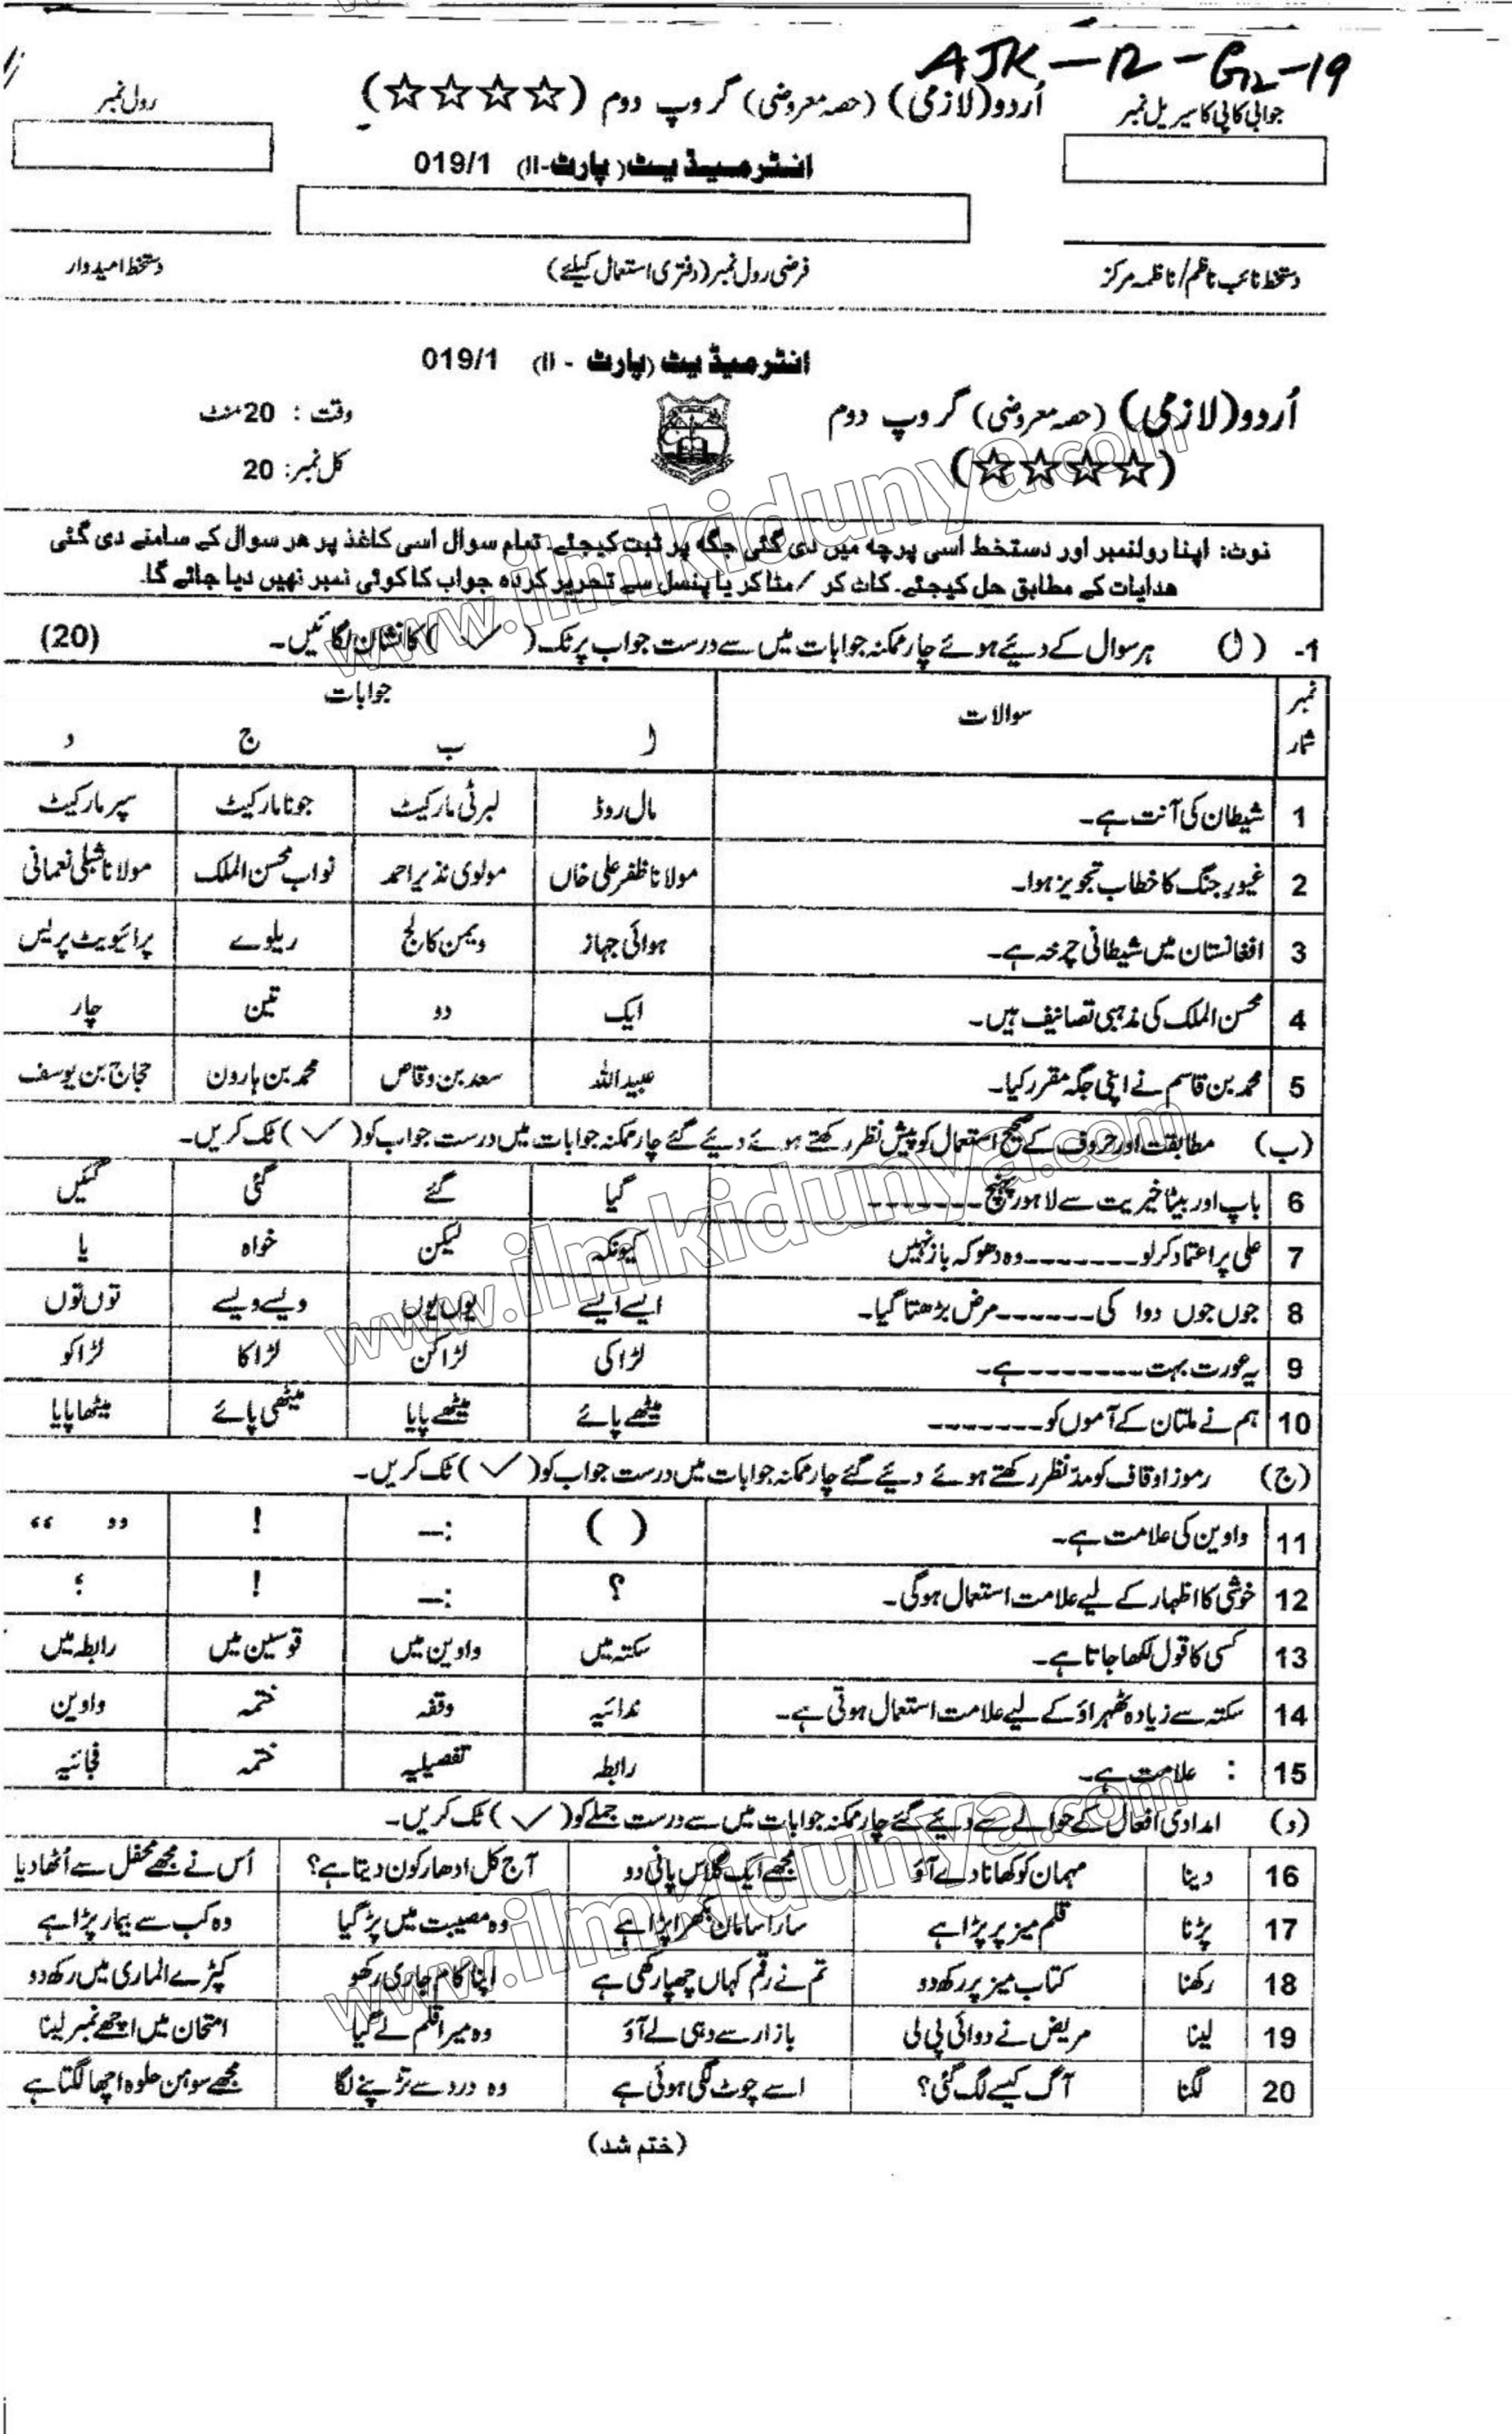 AJK-12-G2-19
جوابی کاپی کا سیریل نمبر
اُردو (لازمی) (حصہ معروضی) گروپ دوم (☆☆☆☆)
رول نمبر
انٹرمیڈیٹ (پارٹ-II) 019/1
دستخط نائب ناظم/ناظمہ مرکز
فرضی رول نمبر (دفتری استعمال کیلئے)
دستخط امیدوار
انٹرمیڈیٹ (پارٹ - II) 019/1
اُردو (لازمی) (حصہ معروضی) گروپ دوم
وقت : 20 منٹ
(☆☆☆☆)
کل نمبر: 20
نوٹ: اپنا رولنمبر اور دستخط اسی پرچہ میں دی گئی جگہ پر ثبت کیجئے۔ تمام سوال اسی کاغذ پر ھر سوال کے سامنے دی گئی
ھدایات کے مطابق حل کیجئے۔ کاٹ کر / مٹا کر یا پنسل سے تحریر کردہ جواب کا کوئی نمبر نھیں دیا جائے گا۔
1- (ا) ہر سوال کے دئیے ہوئے چار ممکنہ جوابات میں سے درست جواب پر ٹک (✓) کا نشان لگائیں۔ (20)
نمبر شمار سوالات جوابات
ا ب ج د
1 شیطان کی آنت ہے۔ مال روڈ لبرٹی مارکیٹ جونا مارکیٹ سپر مارکیٹ
2 غیور جنگ کا خطاب تجویز ہوا۔ مولانا ظفر علی خاں مولوی نذیر احمد نواب محسن الملک مولانا شبلی نعمانی
3 افغانستان میں شیطانی چرخہ ہے۔ ہوائی جہاز ویمن کالج ریلوے پرائیویٹ پریس
4 محسن الملک کی مذہبی تصانیف ہیں۔ ایک دو تین چار
5 محمد بن قاسم نے اپنی جگہ مقرر کیا۔ عبیداللہ سعد بن وقاص محمد بن ہارون حجاج بن یوسف
(ب) مطابقت اور حروف کے صحیح استعمال کو پیش نظر رکھتے ہوئے دیئے گئے چار ممکنہ جوابات میں درست جواب کو (✓) ٹک کریں۔
6 باپ اور بیٹا خیریت سے لاہور پہنچ ------- گیا گئے گئی گئیں
7 علی پر اعتماد کرلو -------- وہ دھوکہ باز نہیں کیونکہ لیکن خواہ یا
8 جوں جوں دوا کی ------ مرض بڑھتا گیا۔ ایسے ایسے یوں یوں ویسے ویسے توں توں
9 یہ عورت بہت -------- ہے۔ لڑاکی لڑاکن لڑاکا لڑاکو
10 ہم نے ملتان کے آموں کو ------- میٹھے پائے میٹھے پایا میٹھی پائے میٹھا پایا
(ج) رموز اوقاف کو مدّنظر رکھتے ہوئے دیئے گئے چار ممکنہ جوابات میں درست جواب کو (✓) ٹک کریں۔
11 واوین کی علامت ہے۔ ( ) :— ! “ ”
12 خوشی کا اظہار کے لیے علامت استعمال ہوگی۔ ؟ :— ! ؛
13 کسی کا قول لکھا جاتا ہے۔ سکتہ میں واوین میں قوسین میں رابطہ میں
14 سکتہ سے زیادہ ٹھہراؤ کے لیے علامت استعمال ہوتی ہے۔ ندائیہ وقفہ ختمہ واوین
15 : علامت ہے۔ رابطہ تفصیلیہ ختمہ فجائیہ
(د) امدادی افعال کے حوالے سے دیئے گئے چار ممکنہ جوابات میں سے درست جملے کو (✓) ٹک کریں۔
16 دینا مہمان کو کھانا دے آؤ مجھے ایک گلاس پانی دو آج کل ادھار کون دیتا ہے؟ اُس نے مجھے محفل سے اُٹھا دیا
17 پڑنا قلم میز پر پڑا ہے سارا سامان بکھرا پڑا ہے وہ مصیبت میں پڑ گیا وہ کب سے بیمار پڑا ہے
18 رکھنا کتاب میز پر رکھ دو تم نے رقم کہاں چھپا رکھی ہے اپنا کام جاری رکھو کپڑے الماری میں رکھ دو
19 لینا مریض نے دوائی پی لی بازار سے دہی لے آؤ وہ میرا قلم لے گیا امتحان میں اچھے نمبر لینا
20 لگنا آگ کیسے لگ گئی؟ اسے چوٹ لگی ہوئی ہے وہ درد سے تڑپنے لگا مجھے سوہن حلوہ اچھا لگتا ہے
(ختم شد)
www.ilmkidunya.com
www.ilmkidunya.com
www.ilmkidunya.com